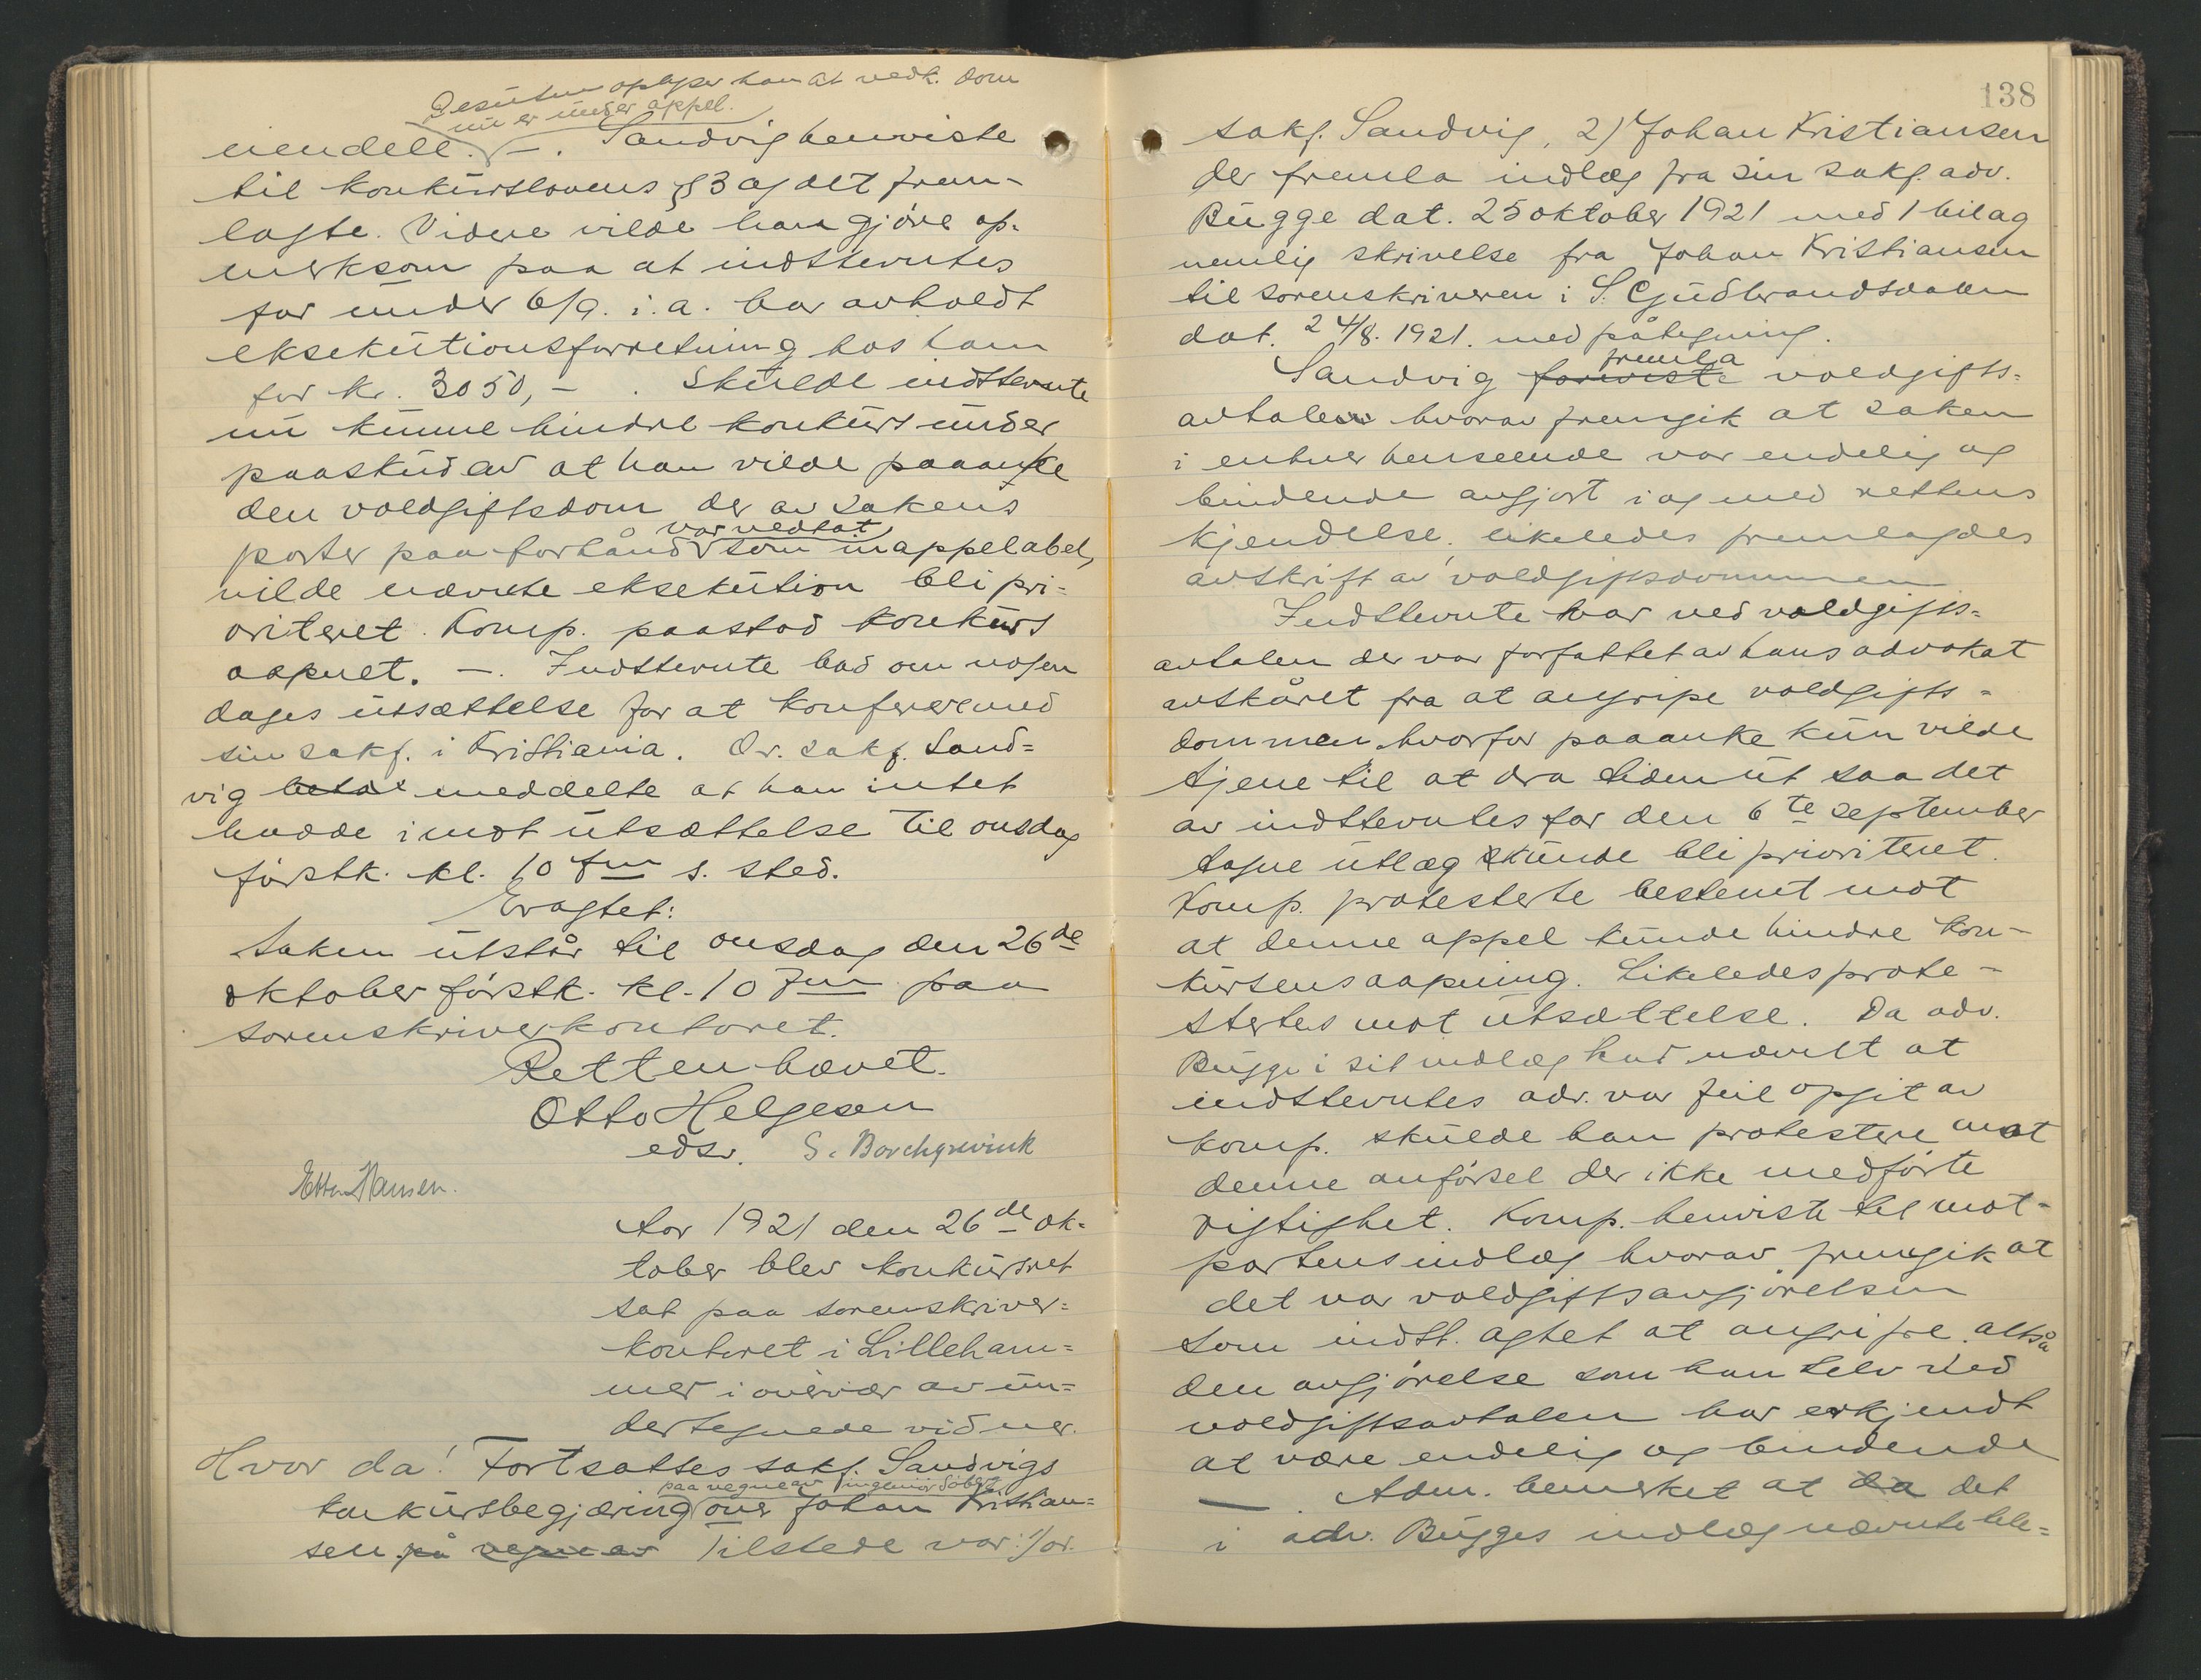 Desuten oplyser han at vedk. dom
nu er under appel.
uendell. —. Sandvig henviste
til konkurslovens § 3 og det frem-
lagte. Videre vilde han gjøre op-
merksom paa at indstevntes
far under 6/9. i. a. har avholdt
eksekutionsforretning hos ham
for kr. 3050,- . Skulde indstevnte
nu kunne hindre konkurs under
paaskud av at han vilde paaanke
den voldgiftsdom der av sakens
var vedtat
parter paa forhånd som inappelabel,
vilde nævnte eksekution bli pri-
oriteret. Komp. paastod konkurs
aapnet. —. Indstevnte bad om nogen
dages utsættelse for at konferere med
sin sakf. i Kristiania. Or. sakf. Sand-
vig meddelte at han intet
hadde imot utsættelse til onsdag
førstk. kl. 10 fm s. sted.
Eragtet:
Saken utstår til onsdag den 26de
oktober førstk. kl. 10 fm paa
sorenskriverkontoret.
Retten hævet.
Otto Helgesen
edsv. S. Borchgrevink
Hansen.
Aar 1921 den 26de ok-
tober blev konkursret
sat paa sorenskriver-
kontoret i Lilleham-
mer i overvær av un-
dertegnede vidner.
Hvor da! Fortsattes sakf. Sandvigs
paa vegne av ingeniør Søberg
konkursbegjæring over Johan Kristian-
sen på vegne av Tilstede var: 1/or.
138
sakf. Sandvig, 2) Johan Kristiansen
der fremla indlæg fra sin sakf. adv.
Bugge dat. 25 oktober 1921 med 1 bilag
nemlig skrivelse fra Johan Kristiansen
til sorenskriveren i S. Gudbrandsdalen
dat. 24/8. 1921. med påtegning.
fremla
Sandvig voldgifts-
avtalen hvorav fremgik at saken
i enhver henseende var endelig og
bindende avgjort i og med rettens
kjendelse, likeledes fremlagdes
avskrift av voldgiftsdommen
Indstevnte var ved voldgifts-
avtalen der var forfattet av hans advokat
avskåret fra at angripe voldgifts-
dommen hvorfor paaanke kun vilde
tjene til at dra tiden ut saa det
av indstevntes far den 6te september
tagne utlæg kunde bli prioriteret.
Komp. protesterte bestemt mot
at denne appel kunde hindre kon-
kursens aapning. Likeledes prote-
stertes mot utsættelse. Da adv.
Bugge i sit indlæg had nævnt at
indstevntes adr. var feil opgit av
komp. skulde han protestere mot
denne anførsel der ikke medførte
rigtighet. Komp. henviste til mot-
partens indlæg hvorav fremgik at
det var voldgiftsavgjørelsen
som indst. agtet at angripe altså
den avgjørelse som han selv ved
voldgiftsavtalen har erkjendt
at være endelig og bindende
—. Adm. bemerket at da det
i adv. Bugges indlæg nævnte tele-